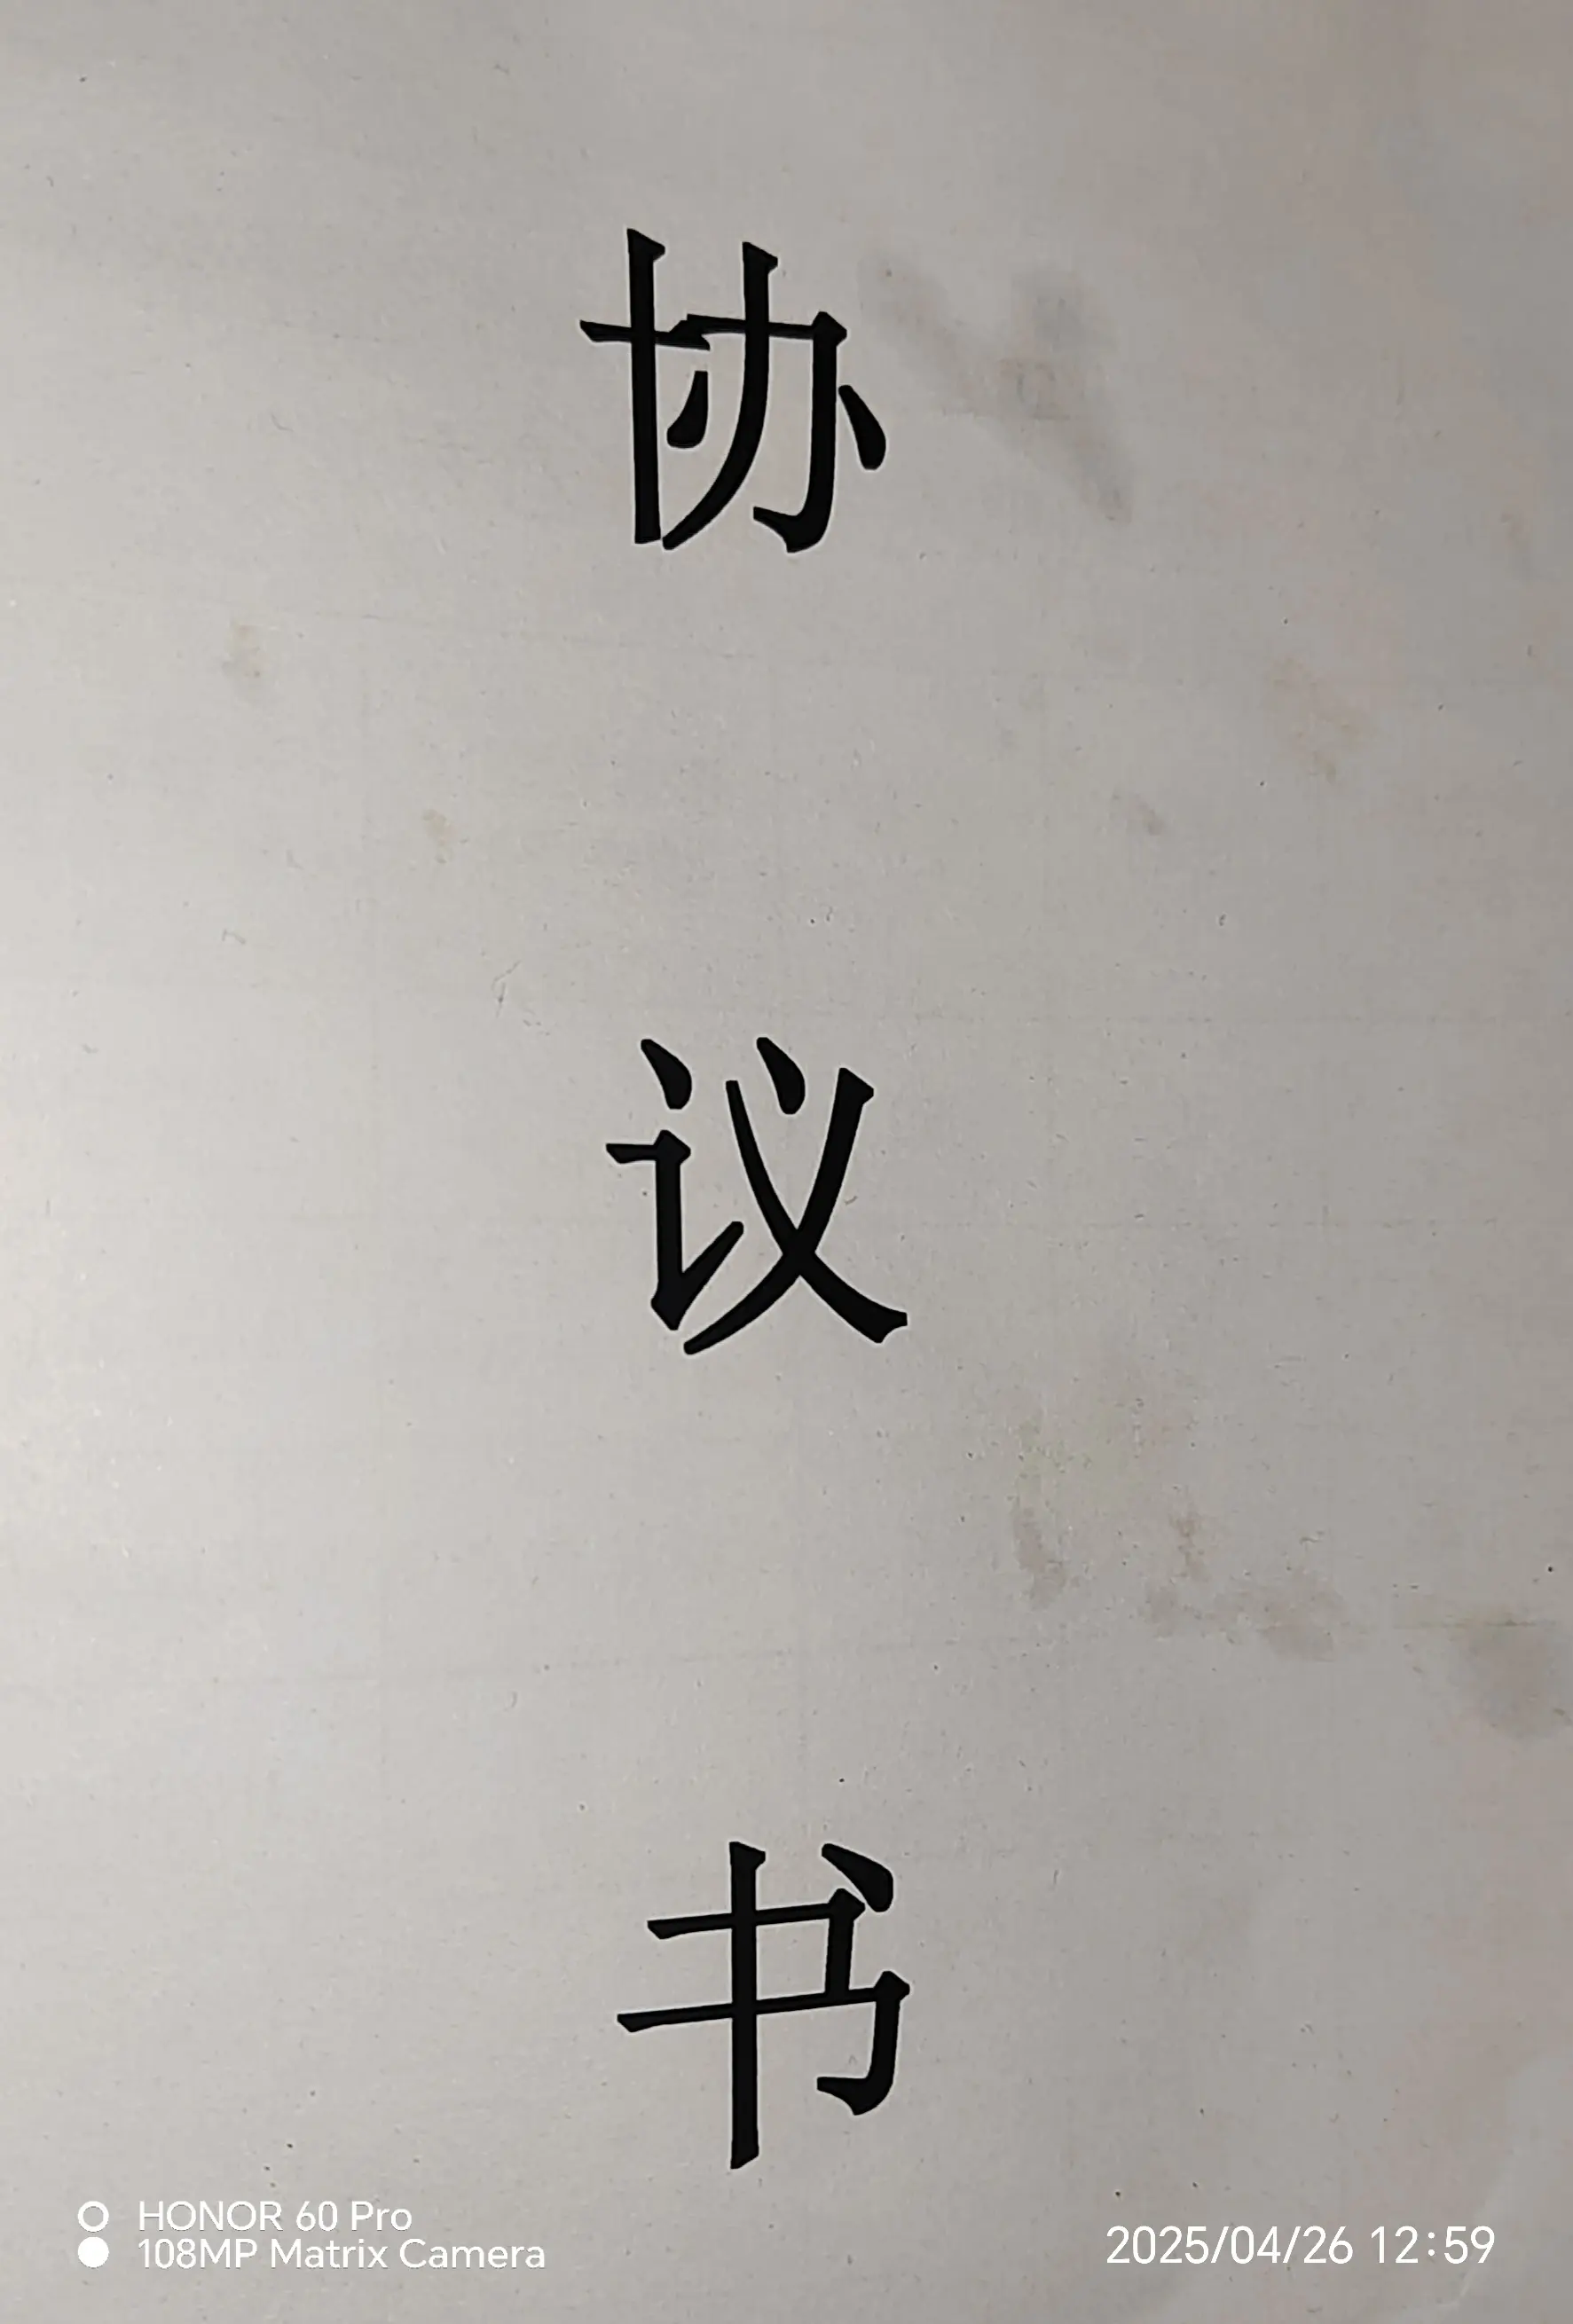 协
议
书
HONOR 60 Pro
108MP Matrix Camera
2025/04/26 12:59